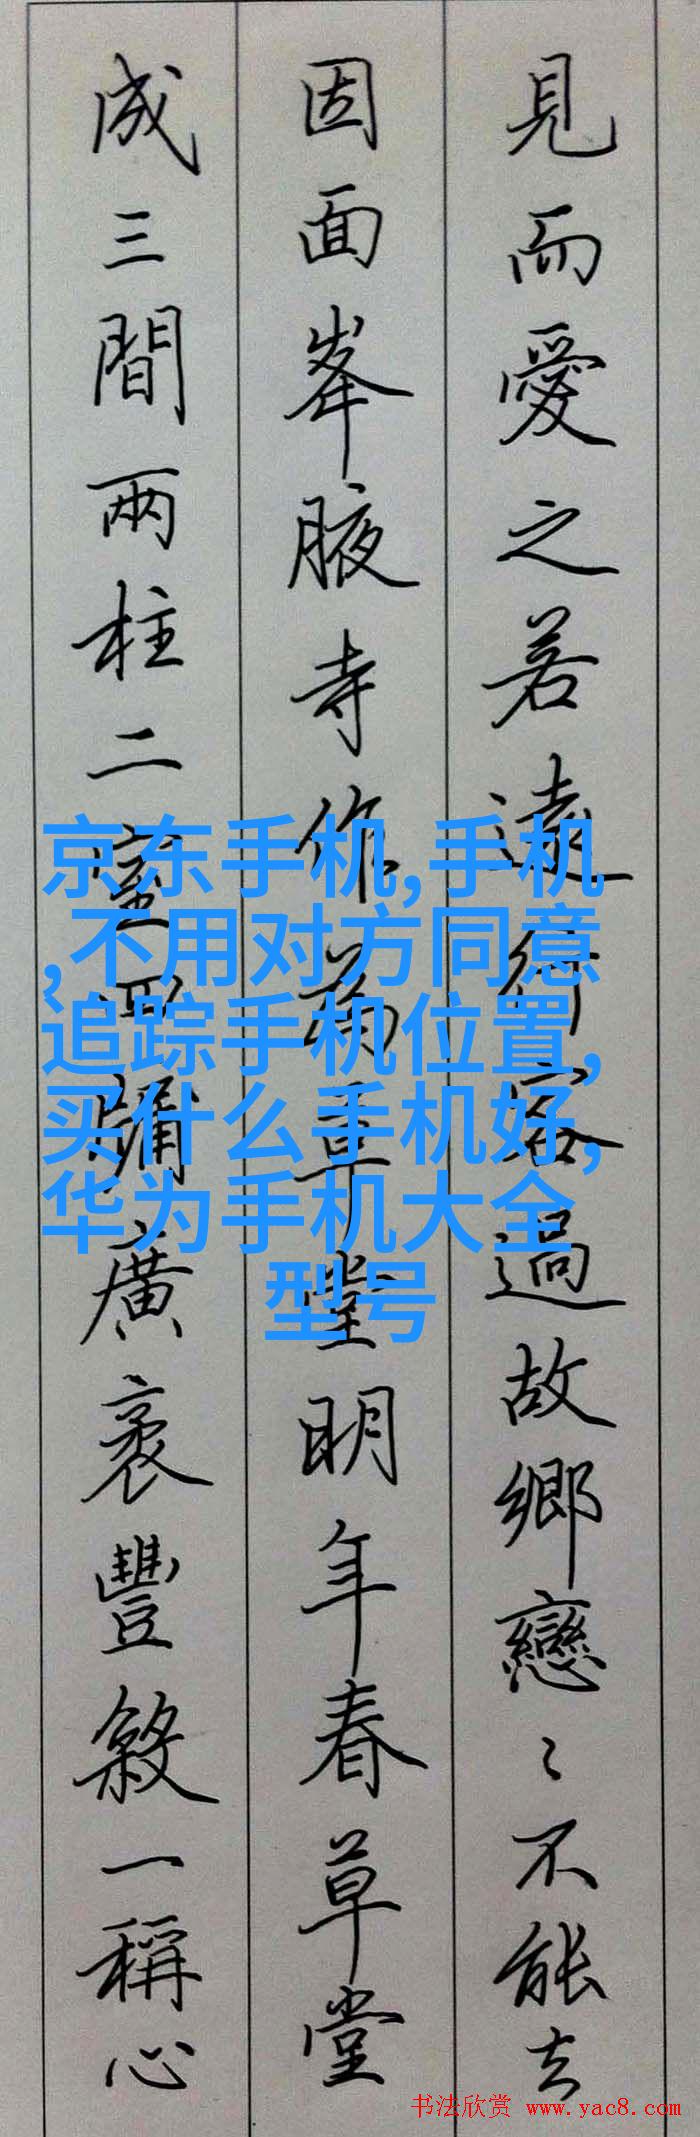 見而愛之若遠行客過故鄉戀〻不能去
因面峯腋寺作為草堂明年春草堂
成三間兩柱二室四牖廣袤豐殺一稱心
京东手机,手机
,不用对方同意
追踪手机位置,
买什么手机好,
华为手机大全
型号
书法欣赏 www.yac8.com